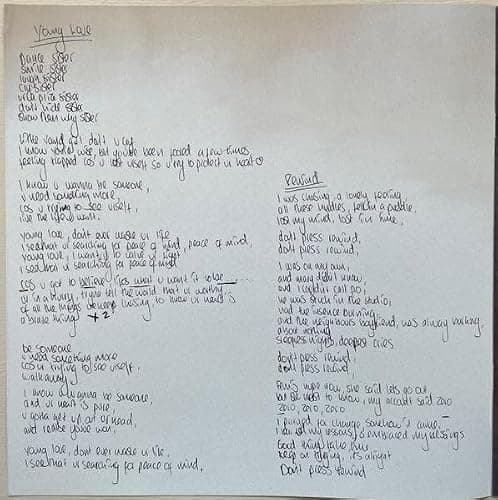 Young Love
Dance sister
smile sister
laugh sister
cry sister
don't hide sister
show them why sister
little young girl don't u cry
I know you're wise, but you've been fooled a few times,
feeling trapped cos u lost urself so u try to protect ur heart
I know u wanna be someone,
u need something more,
cos u trying to see urself,
live the life u want.
young love, don't ever waste ur life
I see that ur searching for peace of mind, peace of mind,
young love, I want u to
I see that ur searching for peace of mind
cos u got to believe, it's what u want it to be
ur in a hurry, trying tell the world that ur
of all the things missing, to know ur heart is
a brave thing x2
be someone
u need something more
cos ur trying to see urself,
walk away
I know u wanna be someone,
and ur heart is pure,
u gotta get up out ur head,
and realise your
young love, don't ever waste ur life,
I see that ur searching for peace of mind,
Rewind
I was chasing a lonely feeling,
all these
lost my mind, lost in time,
don't press rewind,
don't press rewind,
I was on my own,
and many didn't know,
and I couldn't let go,
he was stuck in the studio,
had the incense burning,
and the neighbours boyfriend, was always
about nothing
sleepless nights, deepest cries
don't press rewind,
don't press rewind,
right now, she said lets go out
but need to know, my accountant said zero
zero, zero, zero
I prayed for change, somehow it came -
I learned my lessons, & embraced my blessings
Good things take time
keep on trying, it's alright
Don't press rewind